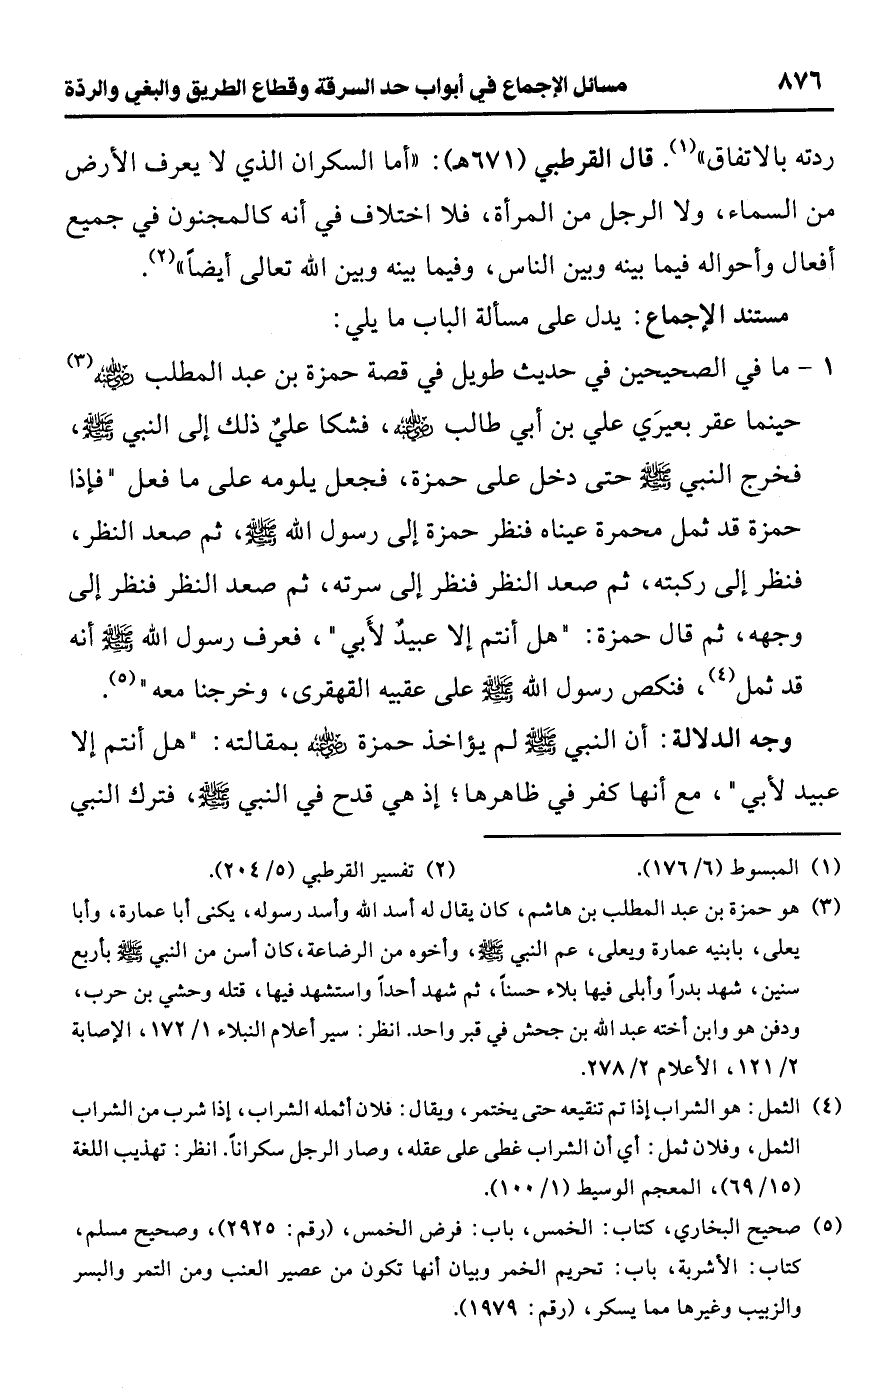 ٨٧٦ مسائل الإجماع في أبواب حد السرقة وقطاع الطريق والبغي والردّة
ردته بالاتفاق»(١). قال القرطبي (٦٧١هـ): «أما السكران الذي لا يعرف الأرض
من السماء، ولا الرجل من المرأة، فلا اختلاف في أنه كالمجنون في جميع
أفعال وأحواله فيما بينه وبين الناس، وفيما بينه وبين الله تعالى أيضاً»(٢).
مستند الإجماع: يدل على مسألة الباب ما يلي:
١ - ما في الصحيحين في حديث طويل في قصة حمزة بن عبد المطلب رضي الله عنه(٣)
حينما عقر بعيرَي علي بن أبي طالب رضي الله عنه، فشكا عليٌ ذلك إلى النبي ﷺ،
فخرج النبي ﷺ حتى دخل على حمزة، فجعل يلومه على ما فعل "فإذا
حمزة قد ثمل محمرة عيناه فنظر حمزة إلى رسول الله ﷺ، ثم صعد النظر،
فنظر إلى ركبته، ثم صعد النظر فنظر إلى سرته، ثم صعد النظر فنظر إلى
وجهه، ثم قال حمزة: "هل أنتم إلا عبيدٌ لأَبي"، فعرف رسول الله ﷺ أنه
قد ثمل(٤)، فنكص رسول الله ﷺ على عقبيه القهقرى، وخرجنا معه"(٥).
وجه الدلالة: أن النبي ﷺ لم يؤاخذ حمزة رضي الله عنه بمقالته: "هل أنتم إلا
عبيد لأبي"، مع أنها كفر في ظاهرها؛ إذ هي قدح في النبي ﷺ، فترك النبي
(١) المبسوط (٦/ ١٧٦). (٢) تفسير القرطبي (٥/ ٢٠٤).
(٣) هو حمزة بن عبد المطلب بن هاشم، كان يقال له أسد الله وأسد رسوله، يكنى أبا عمارة، وأبا
يعلى، بابنيه عمارة ويعلى، عم النبي ﷺ، وأخوه من الرضاعة،كان أسن من النبي ﷺ بأربع
سنين، شهد بدراً وأبلى فيها بلاء حسناً، ثم شهد أحداً واستشهد فيها، قتله وحشي بن حرب،
ودفن هو وابن أخته عبد الله بن جحش في قبر واحد. انظر: سير أعلام النبلاء ١/ ١٧٢، الإصابة
٢/ ١٢١، الأعلام ٢/ ٢٧٨.
(٤) الثمل: هو الشراب إذا تم تنقيعه حتى يختمر، ويقال: فلان أثمله الشراب، إذا شرب من الشراب
الثمل، وفلان ثمل: أي أن الشراب غطى على عقله، وصار الرجل سكراناً. انظر: تهذيب اللغة
(١٥/ ٦٩)، المعجم الوسيط (١/ ١٠٠).
(٥) صحيح البخاري، كتاب: الخمس، باب: فرض الخمس، (رقم: ٢٩٢٥)، وصحيح مسلم،
كتاب: الأشربة، باب: تحريم الخمر وبيان أنها تكون من عصير العنب ومن التمر والبسر
والزبيب وغيرها مما يسكر، (رقم: ١٩٧٩).